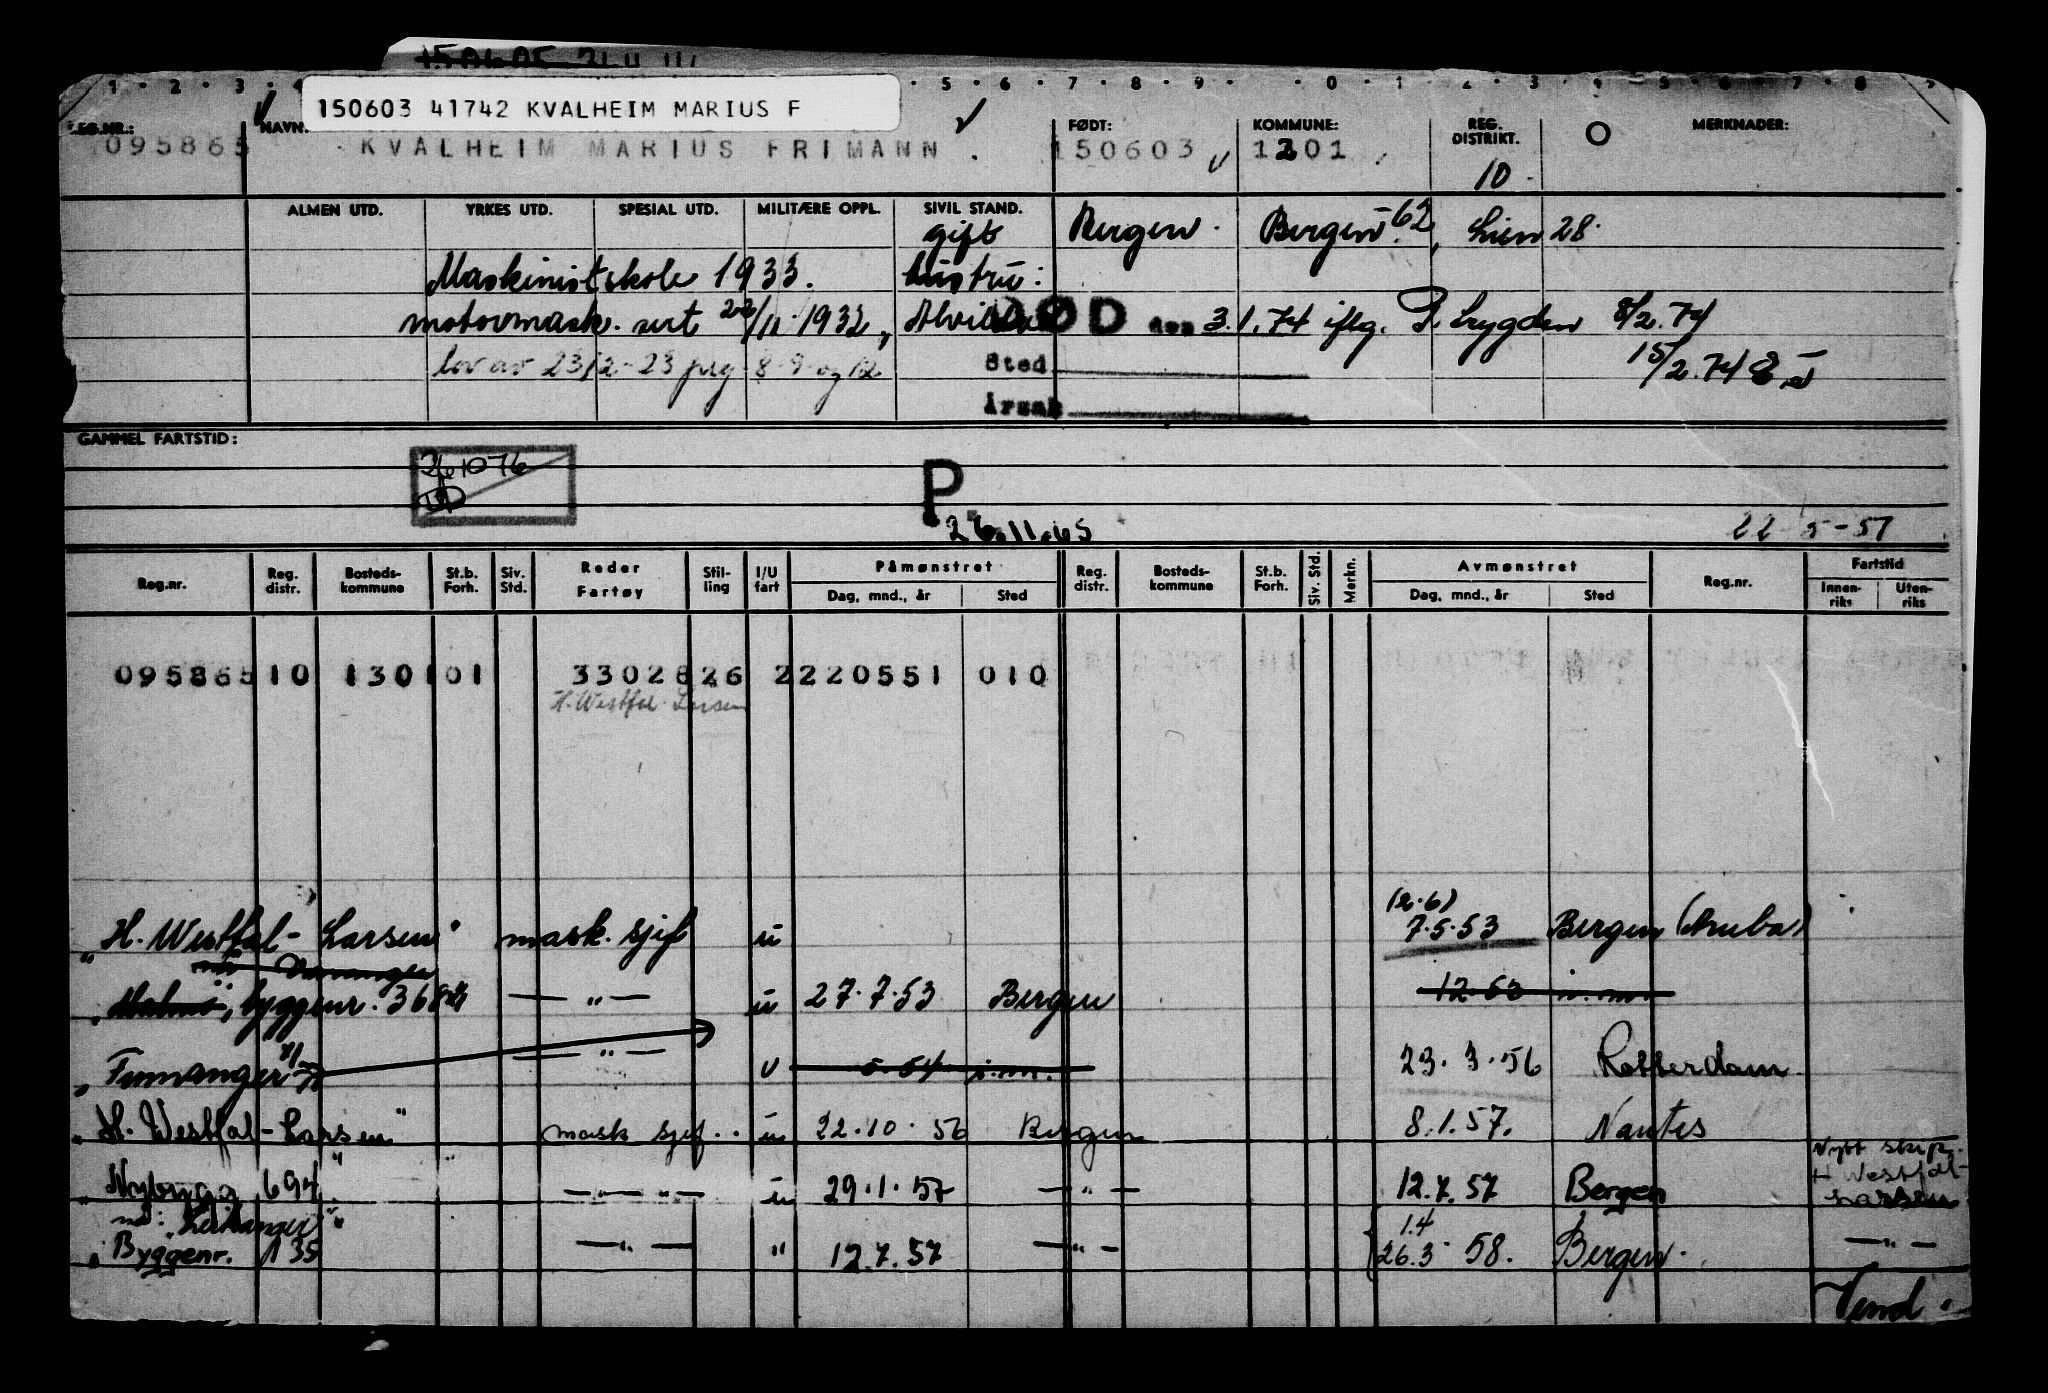 1 · 2 · 3 · 4
5 · 6 · 7 · 8 · 9 · · 0 · 1 · 2 · 3 · 4 · 5 · 6 · 7 · 8
150603 41742 KVALHEIM MARIUS F
REG.NR.: NAVN: FØDT: KOMMUNE: REG. DISTRIKT. O MERKNADER:
095865 KVALHEIM MARIUS FRIMANN 150603 1201
10
ALMEN UTD. YRKES UTD. SPESIAL UTD. MILITÆRE OPPL. SIVIL STAND.
gift Bergen. Bergen 62, Lien 28.
Maskinistskole 1933. hustru:
motormask. sert 22/11 · 1932, DØD den 3.1.74 iflg. Trygden 8/2.74
lov av 23/2-23 prg 8-9 og 12 Sted 15/2.74
Årsak
GAMMEL FARTSTID:
1076
P
26.11.65 22-5-51
Reg.nr. Reg. distr. Bosteds-kommune St.b. Forh. Siv. Std. Reder Fartøy Stil-ling I/U fart Påmønstret Dag, mnd., år Sted Reg. distr. Bosteds-kommune St.b. Forh. Siv. Std. Merkn. Avmønstret Dag, mnd., år Sted Reg.nr. Fartstid Innen-riks Uten-riks
095865 10 1301 01 33028 26 2 220551 010
H. Westfal Larsen
(2.6)
"H. Westfal-Larsen" mask. sjef u 7.5.53 Bergen (Aruba)
Malmø, byggenr. — " — u 27.7.53 Bergen 12.53 i.m.
— " — u 5.54 i.m. 23.3.56 Rotterdam
"H. Westfal-Larsen" mask sjef. u 22.10.56 Bergen 8.1.57. Nantes
Nytt skip.
"Nybygg 694" — " — u 29.1.57 — " — 12.7.57 Bergen H Westfal-Larsen
1.4
"Byggenr. 135 — " — " 12.7.57 — " — 26.3 58. Bergen. — " —
Vend.